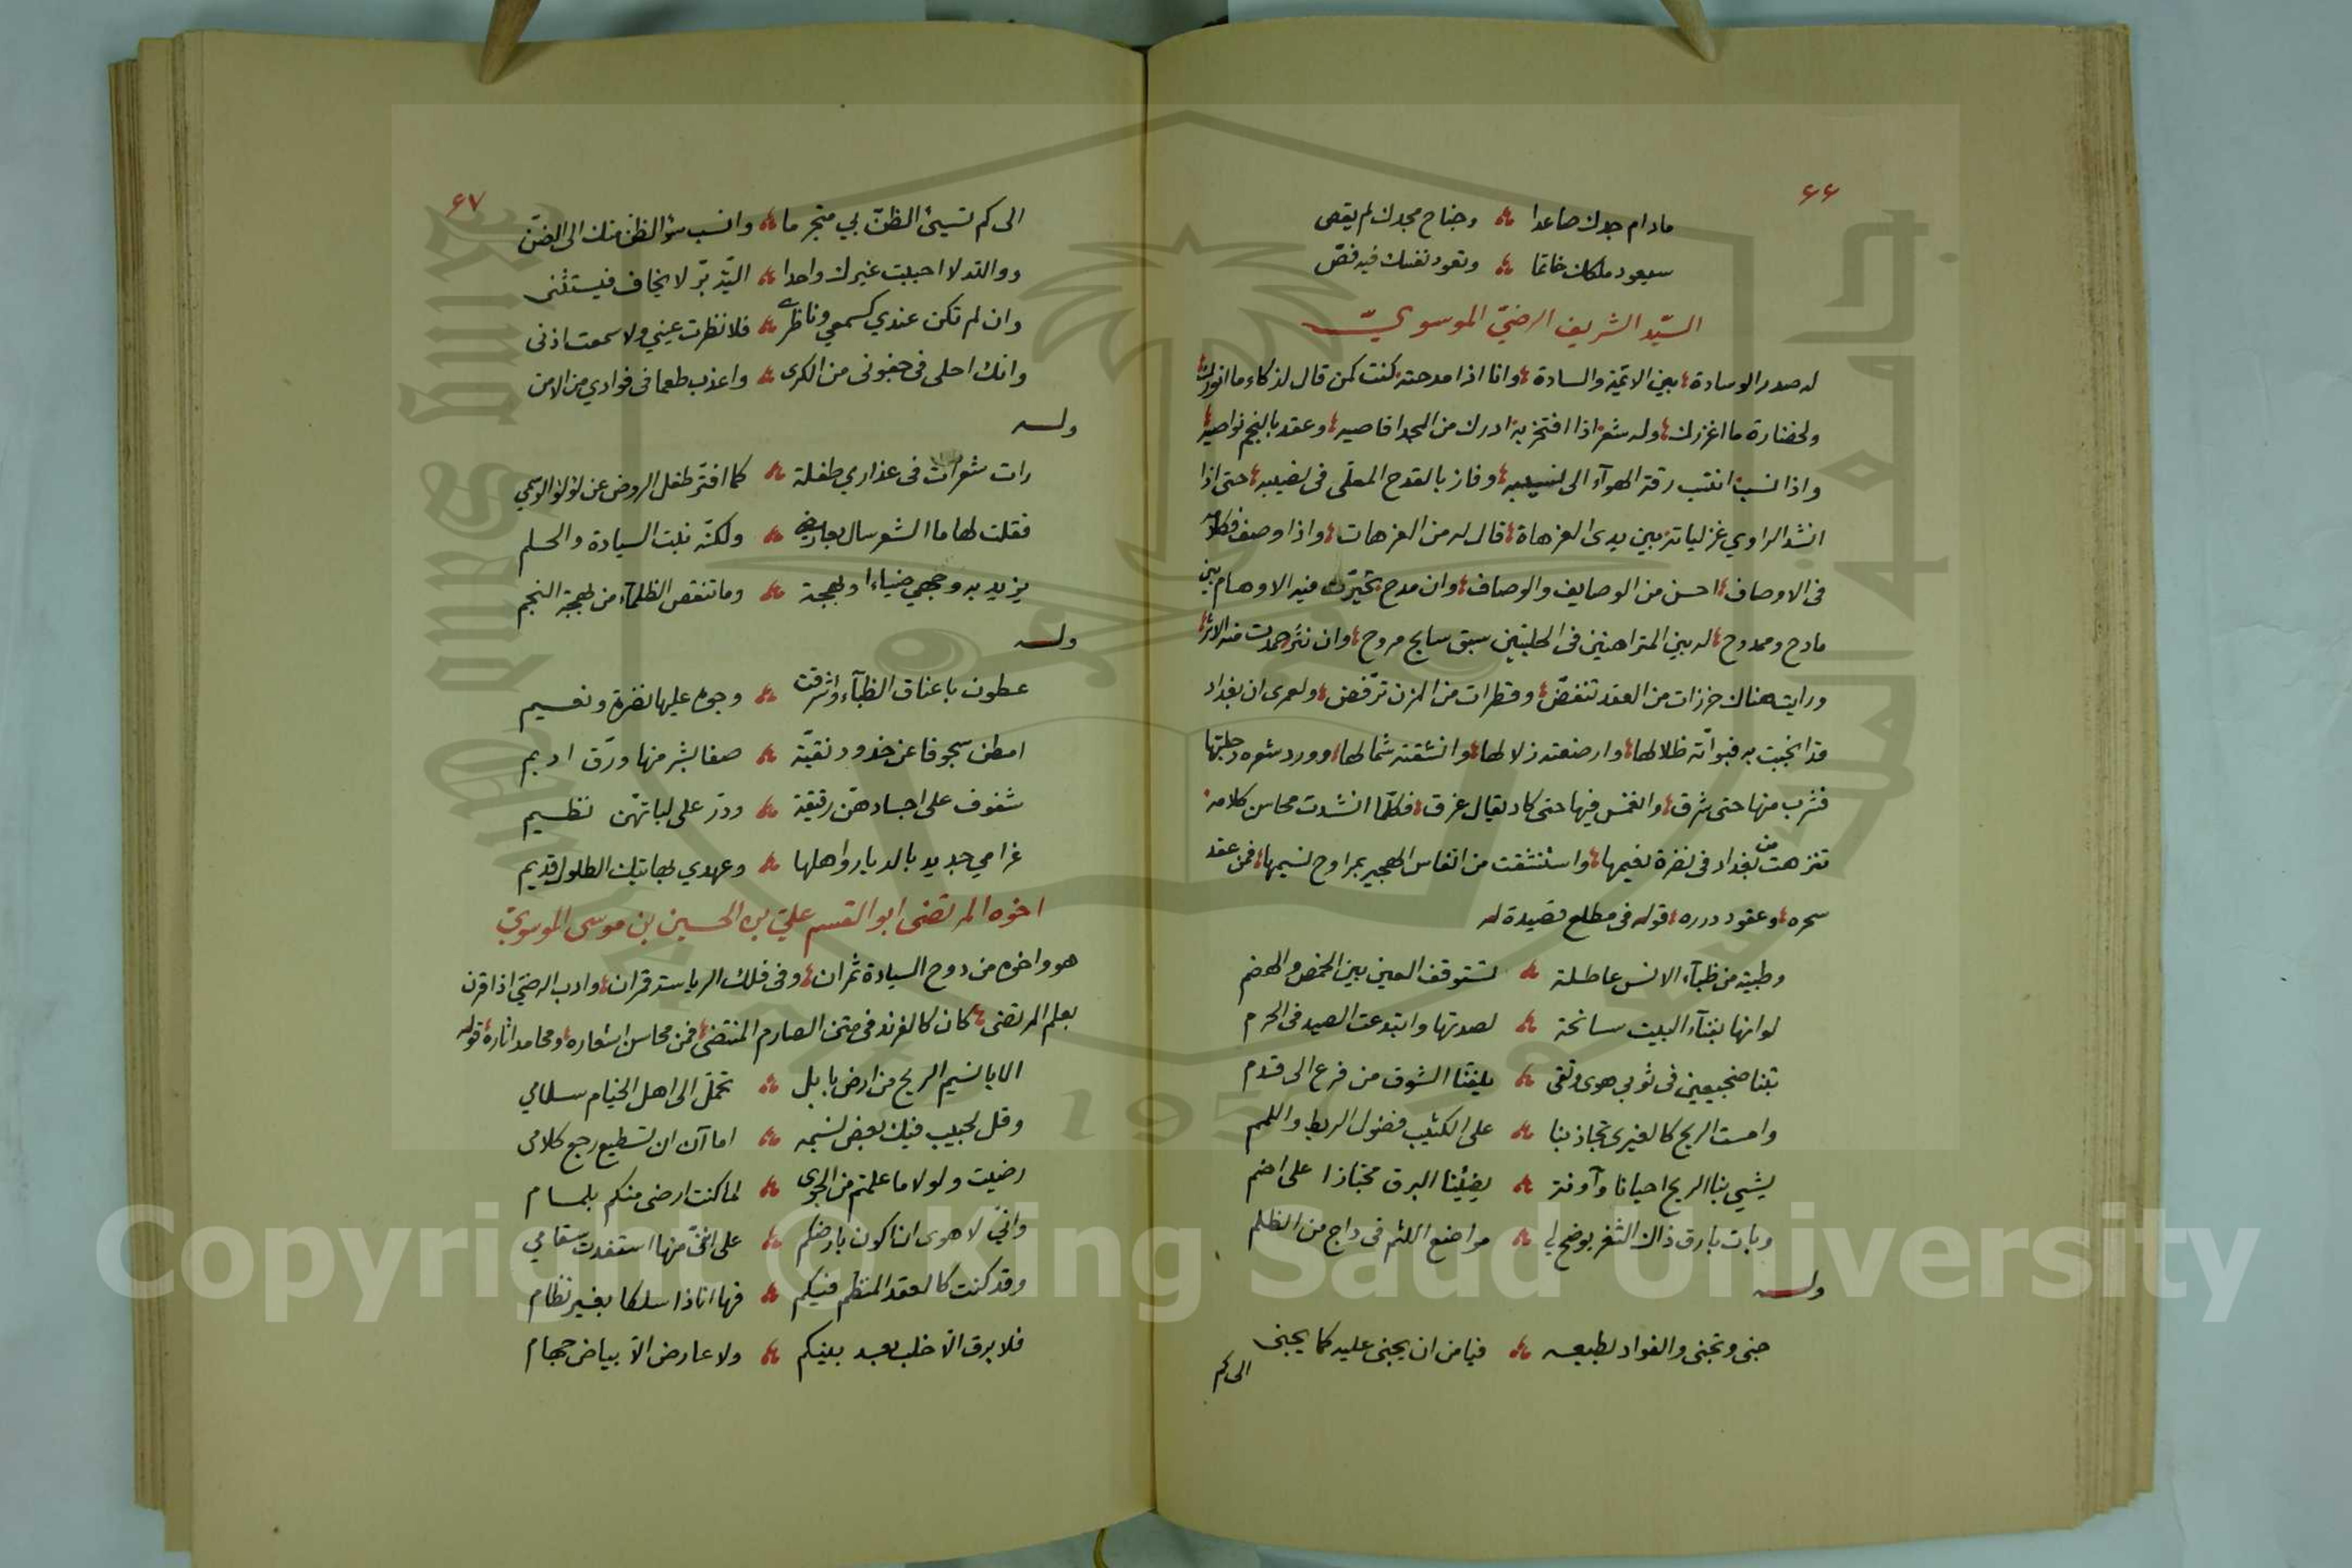 ٦٦
مادام جدك صاعدا وجناح مجدك لم يقص
سيعود ملكك خاتما وتعود نفسك فيه فصّ
السيّد الشريف الرضيّ الموسويّ
له صدر الوسادة بين الائمّة والسادة وانا اذا مدحته كنت كمن قال لذكاء ما انورك
ولخضارة ما اغزرك وله شعر اذا افتخر به ادرك من المجد اقاصيه وعقد بالنجم نواصيه
واذا نسب انتسب رقة الهوآء الى نسيبه وفاز بالقدح المعلّى في نصيبه حتى اذا
انشد الراوي غزلياته بين يدى العزهاة قال له من العزهات واذا وصف فكلامه
فى الاوصاف احسن من الوصايف والوصاف وان مدح تحيّرت فيه الاوهام بين
مادح وممدوح له بين المتراهنين فى الحلبتين سبق سابح مروح وان نثر حمدت منه الاثر
ورايت هناك خرزات من العقد تنفضّ وقطرات من المزن ترفّض ولعمرى ان بغداد
قد انجبت به فبوأته ظلالها وارضعته زلالها وانشقته شمالها وورد شعره دجلتها
فشرب منها حتى شرق وانغمس فيها حتى كاد يقال غرق فكلّما انشدت محاسن كلامه
تنزهت من بغداد فى نضرة نعيمها واستنشقت من انفاس الهجير بمراوح نسيمها فمن عقد
سحره وعقود درره قوله فى مطلع قصيدة له
وظبية من ظبآء الانس عاطلة تستوقف العين بين الخمص والهضم
لوانها بفنآء البيت سانحة لصدتها وابتدعت الصيد فى الحرم
بتنا ضجيعين فى ثوبي هوى وتقى يلفّنا الشوق من فرع الى قدم
وامست الريح كالغيرى تجاذبنا على الكثيب فضول الريط واللمم
يشيي بنا الريح احيانا وآونة يضيئنا البرق مجتازا على اضم
وبات بارق ذاك الثغر يوضح لي مواضع اللثم فى داج من الظلم
وله
جنى وتجنى والفواد يطيعه فيا من ان يجنى عليه كما يجنى
الى كم
٦٧
الى كم تسيئ الظنّ بي متجرما وانسب سؤ الظن منك الى الضنّ
ووالله لا احببت غيرك واحدا اليّة برّ لا يخاف فيستثنى
وان لم تكن عندي كسمعي وناظرى فلا نظرت عيني ولا سمعت اذنى
وانك احلى فى جفونى من الكرى واعذب طعما فى فوادي من الامن
وله
رات شعرات فى عذاري طفلة كما افترّ طفل الروض عن لؤلؤ الوسمي
فقلت لها ما الشعر سال بعارضى ولكنّه نبت السيادة والحلم
يزيد به وجهي ضياءا وبهجة وما تنقص الظلمآء من بهجة النجم
وله
عطون باعناق الظبآء واشرقت وجوه عليها نضرة ونعيم
امطن سجوفا عن خدود نقيّة صفا بشر منها ورّق اديم
شفوف على اجسادهنّ رقيقة ودرّ على لباتهّن نظيم
غرامي جديد بالديار واهلها وعهدي بهاتيك الطلول قديم
اخوه المرتضى ابو القسم عليّ بن الحسين بن موسى الموسويّ
هو واخوه من دوح السيادة ثمران وفى فلك الرياسة قمران وادب الرضيّ اذا قرن
بعلم المرتضى كان كالفرند فى متن الصارم المنتضى فمن محاسن اشعاره ومحامد اثاره قوله
الا يا نسيم الريح من ارض بابل تحمّل الى اهل الخيام سلامي
وقل لحبيب فيك بعض نسيمه اما آن ان تسطيع رجع كلامى
رضيت ولولا ما علمتم من الجوى لما كنت ارضى منكم بلمام
وانّي لاهوى ان اكون بارضكم على انّنى منها استفدت سقامي
وقد كنت كالعقد المنظم فيكم فها انا ذا سلكا بغير نظام
فلا برق الّا خلب بعد بينكم ولا عارض الّا بياض جهام